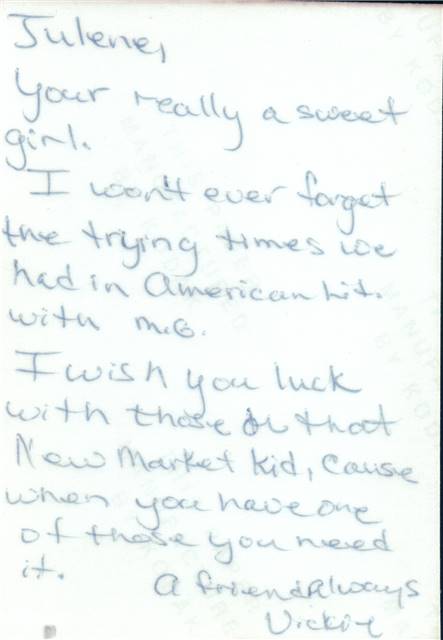 Julene,
Your really a sweet
girl.
I won't ever forget
the trying times we
had in American Lit.
with m.G.
I wish you luck
with those or that
New Market kid, cause
when you have one
of those you need
it.
A friend Always
Vickie